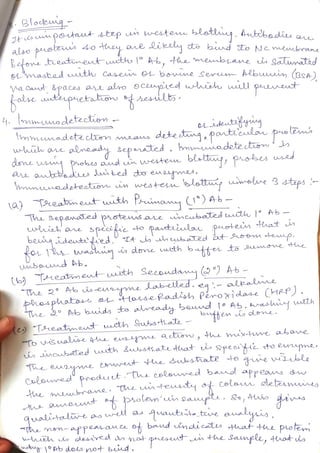 3. Blocking -
It is important step in western blotting. Antibodies are
also proteins so they are likely to bind to NC membrane
before treatment with 1° Ab, the membrane is saturated
or masked with casein or bovine serum Albumin (BSA)
vacant spaces are also occupied which will prevent
false interpretation of results.
4. Immunodetection -
or identifying
Immunodetection means detecting particular proteins
which are already separated. Immunodetection is
done using probes and in western blotting, probes used
are antibodies linked to enzymes.
Immunodetection in western blotting involve 3 steps :-
(a) Treatment with Primary (1°) Ab -
The separated proteins are incubated with 1° Ab -
which are specific to particular protein that is
being identified. It is incubated at room temp.
for 1 hr. washing is done with buffer to remove the
unbound Ab.
(b) Treatment with Secondary (2°) Ab -
The 2° Ab is enzyme labelled. eg :- alkaline
phosphatase or Horse Radish Peroxidase (HRP).
The 2° Ab binds to already bound 1° Ab. washing with
buffer is done.
(c) Treatment with Substrate -
To visualise the enzyme action, the mixture above
is incubated with substrate that is specific to enzyme.
The enzyme convert the substrate to give visible
coloured product. The coloured band appears on
the membrane. The intensity of colour determines
the amount of protein in sample. So, this gives
qualitative as well as quantitative analysis.
The non-appearance of band indicates that the protein
which is desired is not present in the sample, that is
why 1° Ab does not bind.